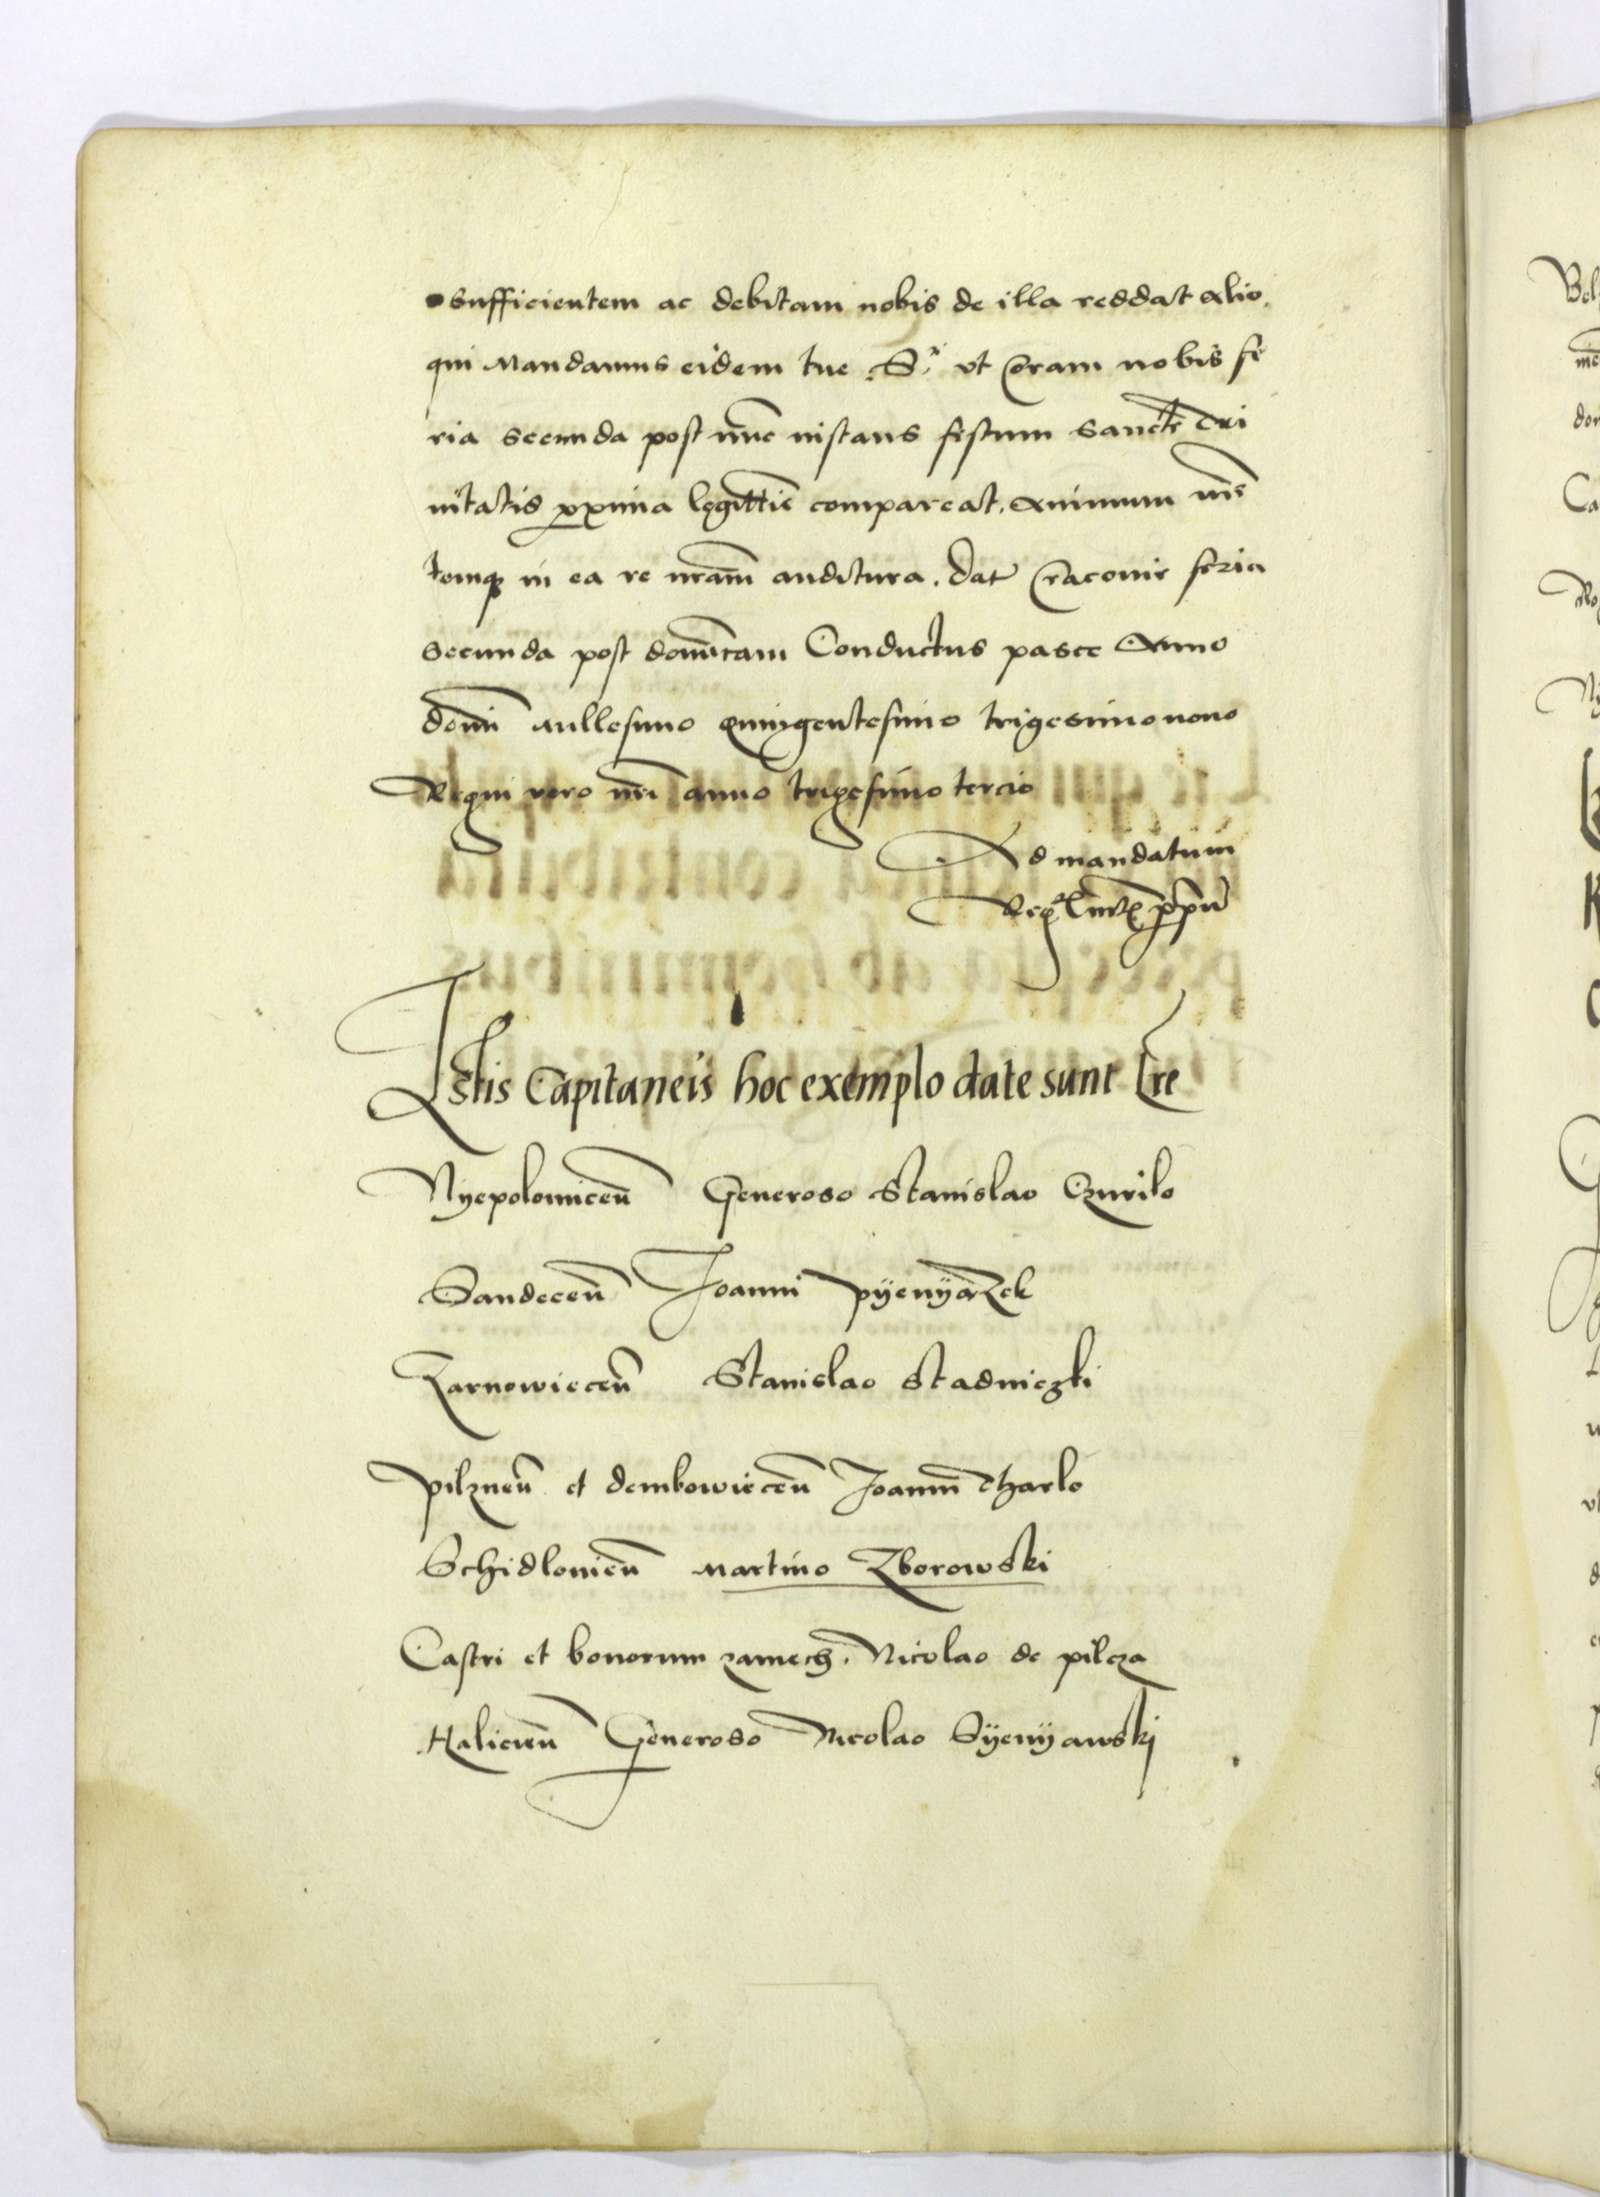 sufficientem ac debitam nobis de illa reddat alio,
qui Mandamus eidem tue S. vt coram nobis fe
ria secunda post nunc instans festum sancte Tri
nitatis proxima legittie compareat. Animum
in ea re nram auditura. Dat Cracovie feria
secunda post domicam Conductus pasce Anno
domi Millesimo quingentesimo trigesimonono
Regni vero nri anno trigesimo tercio
Ad mandatum
Istis Capitaneis hoc exemplo date sunt Lre
Nyepolomiceñ Generoso Stanislao Czurilo
Sandeceñ Joanni Pyenyążek
Zarnowieceñ Stanislao Stadniczki
pilzneñ et dembowieceñ Joanni Tharlo
Schidlovieñ Martino Zborowski
Castri et bonorum zamech. Nicolao de pilcza
Halicieñ Generoso Nicolao Syenyawskj